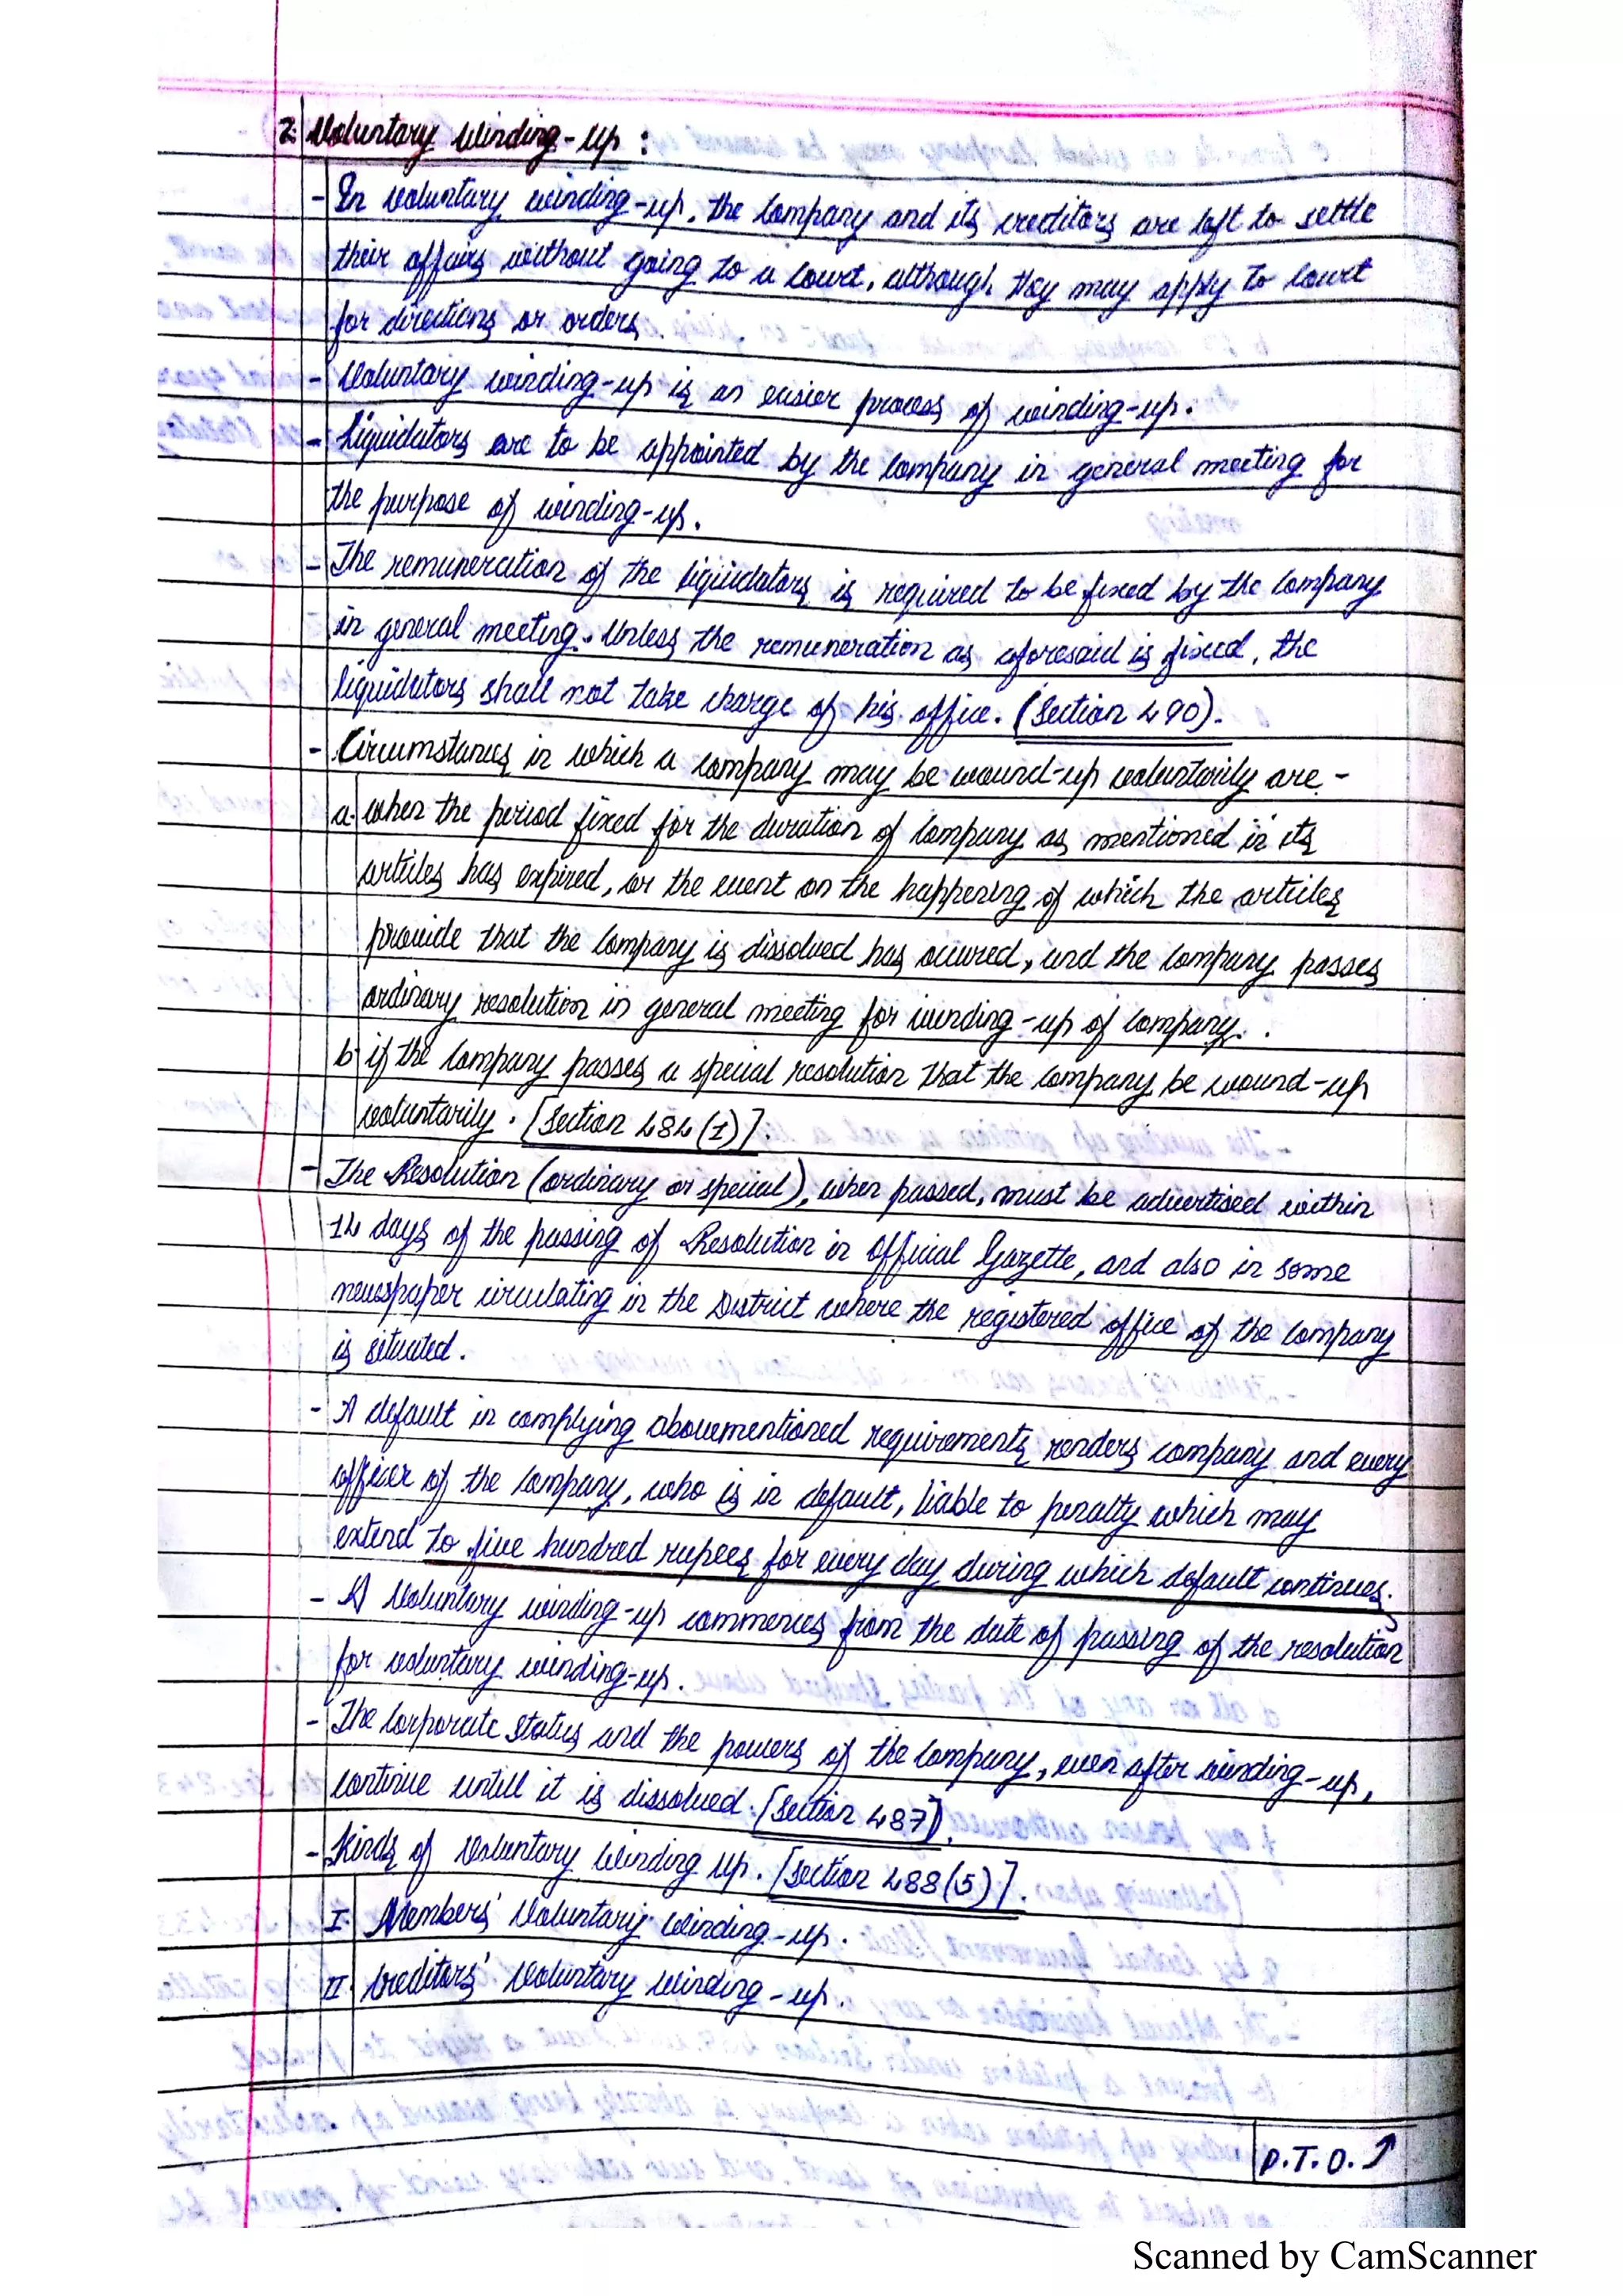 2. Voluntary Winding-up :
- In voluntary winding-up, the company and its creditors are left to settle
their affairs without going to a court, although they may apply to court
for directions or orders.
- Voluntary winding-up is an easier process of winding-up.
- Liquidators are to be appointed by the company in general meeting for
the purpose of winding-up.
- The remuneration of the liquidators is required to be fixed by the company
in general meeting. Unless the remuneration as aforesaid is fixed, the
liquidators shall not take charge of his office. (Section 490).
- Circumstances in which a company may be wound-up voluntarily are -
a. when the period fixed for the duration of company as mentioned in its
articles has expired, or the event on the happening of which the articles
provide that the company is dissolved has occured, and the company passes
ordinary resolution in general meeting for winding-up of company.
b. if the company passes a special resolution that the company be wound-up
voluntarily. [Section 484(1)].
- The Resolution (ordinary or special), when passed, must be advertised within
14 days of the passing of Resolution in Official Gazette, and also in some
newspaper circulating in the District where the registered office of the company
is situated.
- A default in complying abovementioned requirements renders company and every
officer of the company, who is in default, liable to penalty which may
extend to five hundred rupees for every day during which default continues.
- A Voluntary winding-up commences from the date of passing of the resolution
for voluntary winding-up.
- The Corporate status and the powers of the company, even after winding-up,
continue untill it is dissolved. [Section 487].
- Kinds of Voluntary Winding up. [Section 488(5)].
I. Members' Voluntary Winding-up.
II. Creditors' Voluntary Winding-up.
P.T.O.
Scanned by CamScanner